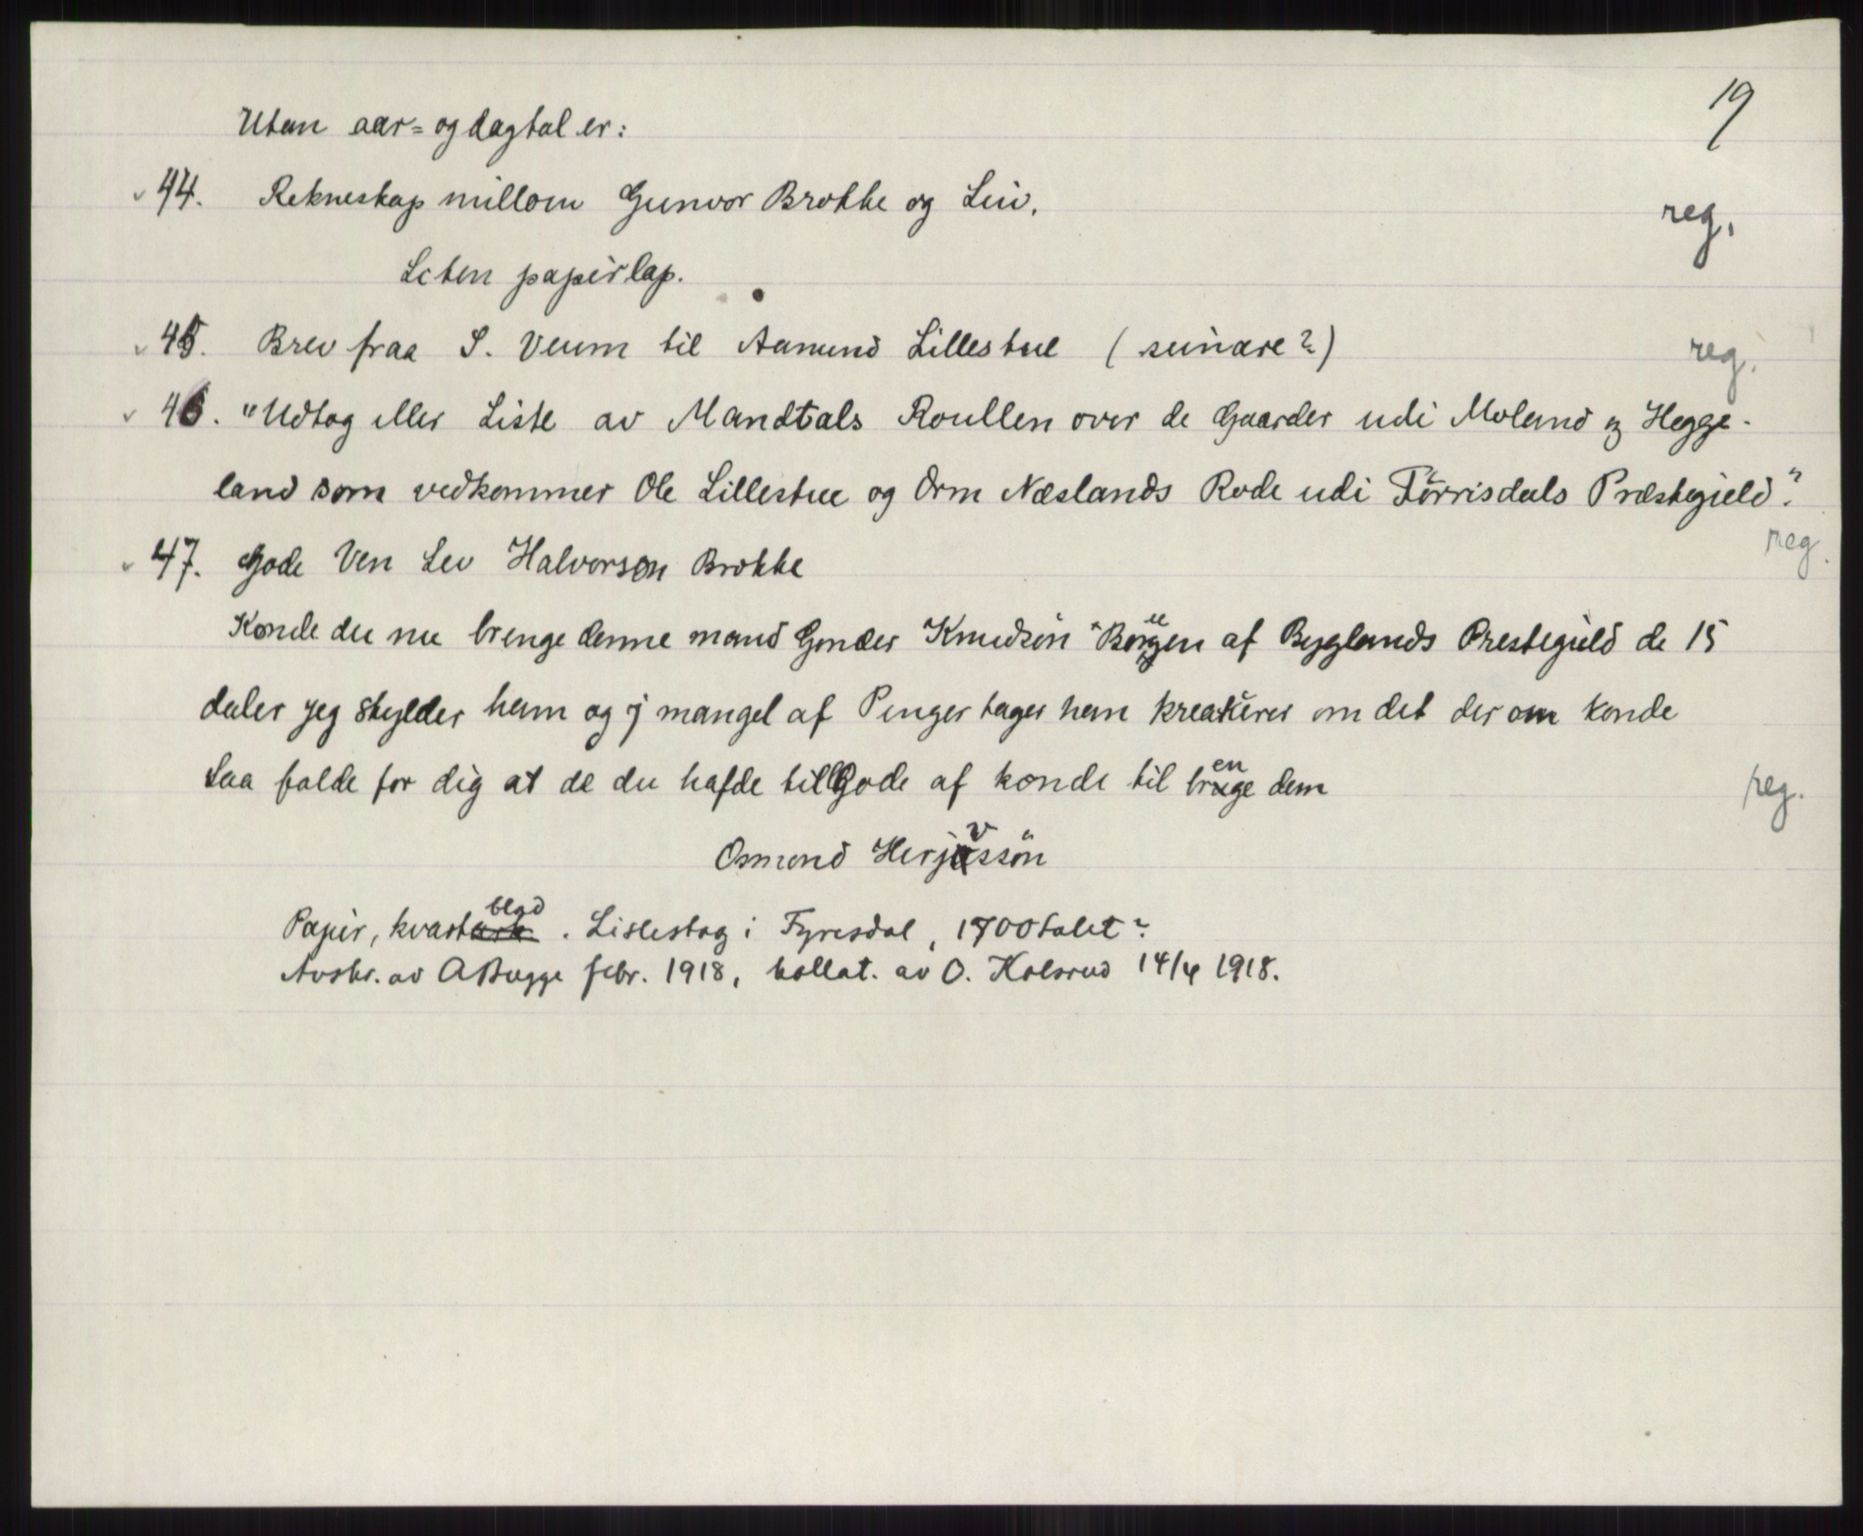 19
Utan aar= og dagtal er:
44. Rekneskap millom Gunvor Brokke og Leiv.
reg.
Liten papirlap.
45. Brev fraa S. Veum til Aamund Lillestul (seinare?)
reg.
46. "Udtog eller Liste av Mandtals Roullen over de Gaarder udi Moland og Hegge-
land som vedkommer Ole Lillestue og Orm Næslands Rode udi Förrisdals Præstegield".
reg.
47. Gode Ven Lev Halvorson Brokke
Konde du nu brenge denne mand Gonder Knudsön Börgen af Byglands Prestegield de 15
daler jeg skylder ham og j mangel af Penger tager han kreatŭrer om det der om konde
saa falde for dig at de du hafde tillGode af konde til brenge dem
reg.
Osmond Herjvssön
Papir, kvartblad. Lislestog i Fyresdal, 1700talet?
Avskr. av A Bugge febr. 1918, kollat. av O. Kolsrud 14/4 1918.